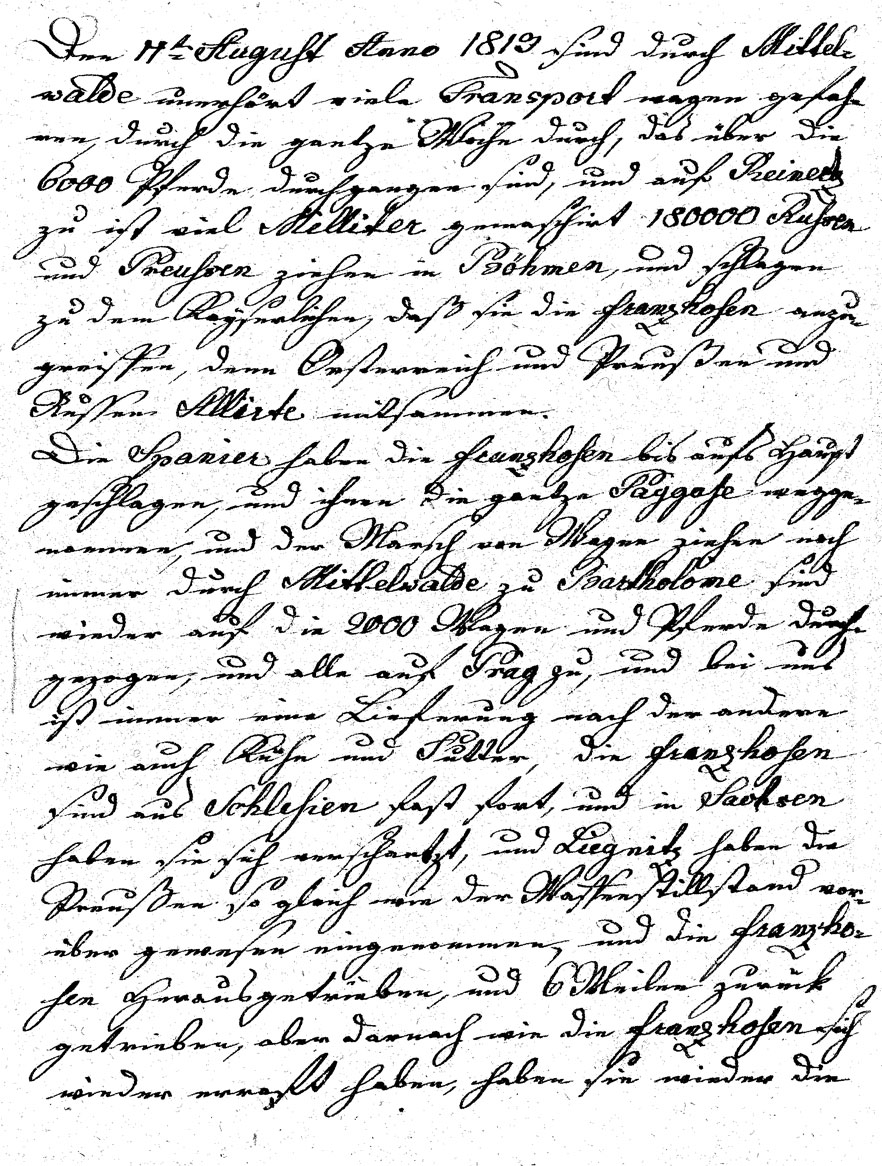 Den 11t August Anno 1813 sind durch Mittel-
walde unerhört viele Transport wagen gefah-
ren, durch die gantze Woche durch, das über die
6000 Pferde durchgangen sind, und auf Reinertz
zu ist viel Milliter gemaschirt 180000 Rußen
und Preußen ziehen in Böhmen, und schlagen
zu dem Kayserlichen, daß sie die franzhosen anzu-
greiffen, denn Oesterreich und Preußen und
Russen Allirte mitsammen.
Die Spanier haben die franzhosen bis aufs Haupt
geschlagen, und ihnen die gantze Paggase wegge-
nommen, und der Marsch von Wagen ziehen noch
immer durch Mittelwalde zu Bartholome sind
wieder auf die 2000 Wagen und Pferde durch-
gezogen, und alle auf Prag zu, und bei uns
ist immer eine Lieferung nach der andere
wie auch Kühe und Futter, die franzhosen
sind aus Schlesien fast fort, und in Sachsen
haben sie sich verschantzt, und Liegnitz haben die
Preußen so gleich wie der Waffenstillstand vor-
über gewesen eingenommen, und die franzho-
sen Herausgetrieben, und 6 Meilen zurück
getrieben, aber darnach wie die franzhosen sich
wieder erraft haben, haben sie wieder die